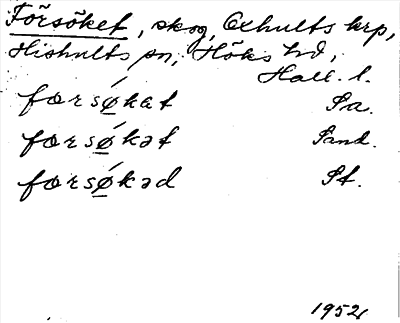 Försöket, skog, Oxhults krp,
Hishults sn, Höks hd,
Hall. l.
førsǿkat Sa.
førsǿkət Sand.
førsǿkəd St.
1952